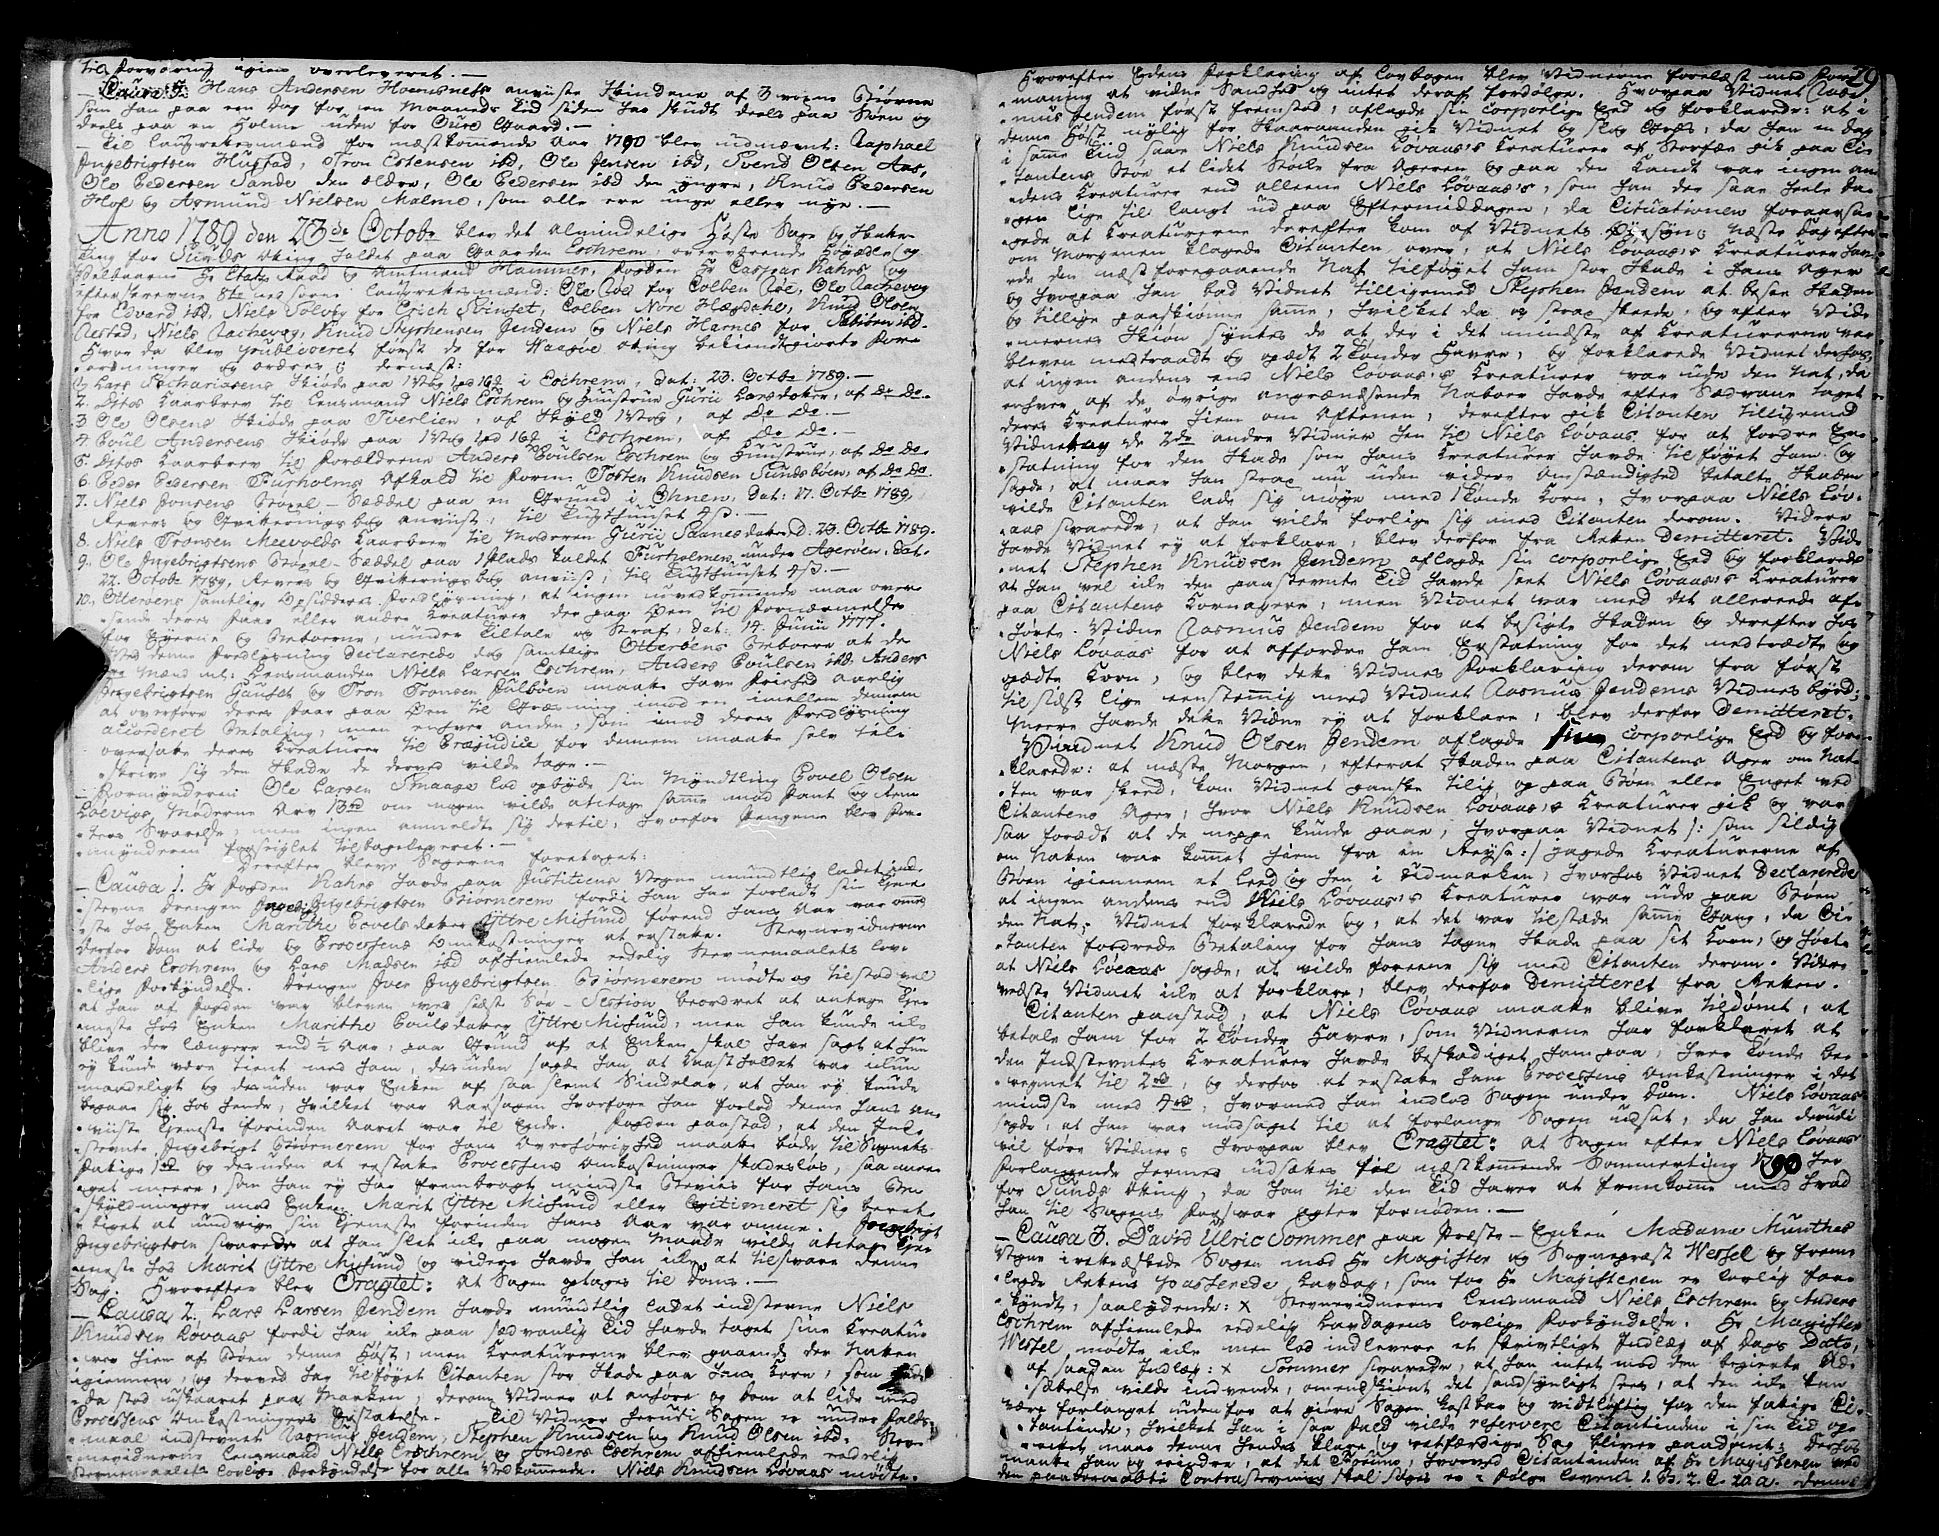 til Forvaring igien overleveret. —
— Causa 5. Hans Andersen Hoemsness anviiste Skindene af 3 voxne Biørne
som han paa een Dag for en Maaneds Tid siden har skudt deels paa Søen og
deels paa en Holme uden for Gure Gaard. —
— Til Laugrettesmænd for næstkomende Aar 1790 blev udnævnt: Raphael
Ingebrigtsen Hustad, Tron Estensen ibd, Ole Jensen ibd, Svend Olsen Aas,
Ole Pedersen Sande den ældre, Ole Pedersen ibd den yngre, Knud Pedersen
Hlof og Asmund Nielsen Malme, som alle ere unge eller nye. —
Anno 1789 den 23de Octobr blev det almindelige Høste Sage og Skatte-
ting for Sunds Otting holdet paa Gaarden Eschrem overværende Høyædle og
Velbaarne Hr Etats Raad og Amtmand Hammer, Fogden Hr Caspar Kahrs og
efterskrevne 8te edsorne Laugrettesmænd: Ole Roe for Colben Roe, Ole Rachevog
for Edvard ibd, Niels Solvog for Erich Svinset, Colben Nore Hægdahl, Knud Olsen
Nerstad, Niels Rachevog, Knud Stephensen Jendem og Niels Harnes for ibd.
Hvor da blev publiceret først de for Waagøe Otting bekiendtgiorte For-
ordninger og ordres; dernæst:
1. Lars Zachariasens Skiøde paa 1 Vog 1 pd 16 i Eschrem, Dat: 23. Octbr 1789. —
2. Ditos Kaarbrev til Lensmand Niels Eschrem og Huustrue Gurii Larsdatter, af Do Do. —
3 Ole Olsens Skiøde paa Tverlien, af Skyld 1 Vog, af Do Do. —
4. Poul Andersens Skiøde paa 1 Vog 1 pd 16 i Eschrem, af Do Do. —
5. Ditos Kaarbrev til Forældrene Anders Poulsen Eschrem og Huustrue, af Do Do.
6. Peder Pedersen Furholms Afkald til Form. Tosten Knudsen Sundsboen, af Do Do.
7. Niels Jonsens Bøxel-Sæddel paa en Grund i Ohnen, Dat. 17. Octbr 1789,
Revers og Qvitterings bog anviist, til Tugthuuset 4 s. —
8. Niels Tronsen Meevolds Kaarbrev til Moderen Gurii Saanes datter D. 23. Octbr 1789.
9. Ole Ingebrigtsens Bøxel-Sæddel paa 1 Plads kaldet Furholmen under Ageroen, Dat.
22. Octobr 1789, Revers og Qvitterings bog anviist, til Tugthuuset 4 s. —
10. Otterøens samtlige Opsidderes Fredlysning, at ingen uvedkommende maa over-
sende deres Faar eller andre Kreaturer der paa Øen til Fornærmelse
for Eyerne og Beboerne, under Tiltale og Straf, Dat: 14. Junii 1777.
Ved denne Fredlysning Declarerede dog samtlige Otterøens Beboere at de
Mænd nl: Lensmanden Niels Larsen Eschrem, Anders Poulsen ibd. Anders
Ingebrigtsen Gauset og Tron Tronsen Julbøen maatte have Friehed aarlig
at overføre deres Faar paa Øen til Græsning mod en imellem dennem
accorderet Betaling; men enhver anden, som mod deres Fredlysning
oversatte deres Kreaturer til Præjudice for dennem maatte selv til-
skrive sig den Skade de derved vilde tage. —
— Formynderen Ole Larsen Smaage lod opbyde sin Myndtling Povel Olsen
Løevigs Møderne Arv 13 rd om nogen vilde antage samme mod Pant og Ren-
ters Svarelse, men ingen anmeldte sig dertil, hvorfor Pengene blev For-
mynderen forseiglet tilbageleveret. —
Derefter bleve Sagerne foretaget:
— Causa 1. Hr Fogden Kahrs havde paa Justitiens Vegne mundtlig ladet ind-
stevne Drengen Ingebrigtsen Biørnerem fordi han har forladt sin Tiene-
ste hos Enken Marithe Povelsdatter Yttre Misund førend hans Aar var omme
derfor Dom at lide og Processens Omkostninger at erstatte. Stevnevidnerne
Anders Eschrem og Lars Madsen ibd afhiemlede eedelig Stevnemaalets lov-
lige Forkyndelse. Drengen Iver Ingebrigtsen Biørnerem mødte og tilstod vel
at han af Fogden var bleven ved sidste Søe-Session beordret at antage Tjen-
neste hos Enken Marithe Poulsdatter Yttre Misund, men han kunde icke
blive der længere end ½ Aar, paa Grund af at Enken skal have sagt at hun
ey kunde være tient med ham, desuden sagde han at Kaastholdet var ilden
maadeligt og desuden var Enken af saa slemt Sindelav, at han ey kunde
begaae sig hos hende, hvilket var Aarsagen hvorfore han forlod denne hans an-
viiste Tjeneste forinden Aaret var til Ende. Fogden paastod, at den Ind-
stevnte Ingebrigt Biørnerem for hans Overhørighed maatte bøde til Sognets
Fattige 1 rd og desuden at erstatte Processens Omkostninger skadesløs, saameget
meget meere, som han ey har frembragt mindste Bevies for hans Be-
skyldninger mod Enken Marit Yttre Misund eller legitimeret sig beret-
tiget at undvige sin Tjeneste forinden hans Aar var omme. Ingebrigt
Ingebrigtsen svarede at han slet icke paa nogen Maade vilde antage Tjen-
neste hos Marit Yttre Misund og videre havde han icke at tilsvare denne
Sag. Hvorefter blev Eragtet: at Sagen optages til Doms. —
— Causa 2. Lars Larsen Jendem havde mundtlig ladet indstevne Niels
Knudsen Løvaas fordi han icke paa sædvanlig Tid havde taget sine Kreatur-
rer hiem af Bøen denne Høst; men Kreaturerne blev gaaende der Natten
igiennem, og derved har tilføyet Citanten stor Skade paa hans Korn, som
da stod uskaaret paa Marken; derom Vidner at anhøre og Dom at lide med
Processens Omkostningers Erstattelse. Til Vidner herudi Sagen er under Falds-
maal indstevnet Rasmus Jendem, Stephen Knudsen og Knud Olsen ibd. Stev-
nevidnerne Lensmand Niels Eschrem og Anders Eschrem afhiemlede eedelig
Stevnemaalets lovlige Forkyndelse for alle Vedkommende. Niels Knudsen Løvaas mødte.
29
Hvorefter Edens Forklaring af Lovbogen blev Vidnerne forelæst med For-
maning at vidne Sandhed og intet deraf fordølge. Hvorpaa Vidnet Ras-
mus Jendem først fremstod, aflagde sin corporlige Eed og forklarede: at i
denne Høst nylig for Skaaraanden gik Vidnet og slog Græs; da han en Dag
i samme Tiid, saae Niels Knudsen Løvaas's Kreaturer af Storfæe gik paa Ci-
tantens Bøe et lidet Støcke fra Ageren og paa den Kandt var ingen an-
dens Kreaturer end alleene Niels Løvaas's, som han der saae heele Da-
gen lige til langt ud paa Eftermiddagen, da Cituationen foraarsa-
gede at Kreaturerne derefter kom af Vidnets Øiesyn; næste Dag efter
om Morgenen klagede Citanten over, at Niels Løvaas's Kreaturer hav-
de den næst foregaaende Nat tilføyet ham stor Skade i hans Ager
og hvorpaa han bad Vidnet tilligemed Stephen Jendem at besee Skaden
og tillige paaskiønne samme, hvilket da og strax skeede, og efter Vid-
nernes Skiøn syntes de at der i det mindste af Kreaturerne var
bleven nedtraadt og opædt 2 Tønder Havre, og forklarede Vidnet derhos,
at ingen andens end Niels Løvaas's Kreaturer var ude den Nat, da
enhver af de øvrige angrændsende Naboer havde efter Sædvane taget
deres Kreaturer hiem om Aftenen; derefter gik Citanten tilligemed
Vidnet og de 2de andre Vidner hen til Niels Løvaas for at fordre Er-
statning for den Skade som hans Kreaturer havde tilføyet ham og
sagde, at naar han strax nu uden videre Omstændighed betalte Skaden
vilde Citanten lade sig nøye med 1 Tønde Korn, hvorpaa Niels Løv-
aas svarede, at han vilde forlige sig med Citanten derom. Videre
havde Vidnet ey at forklare, blev derfor fra Retten Demitteret. Vid-
net Stephen Knudsen Jendem aflagde sin corporlige Eed og forklarede
at han vel icke den paastevnte Tid havde seet Niels Løvaas's Kreaturer
paa Citantens Kornagere; men Vidnet var med det allerede af-
hørte Vidne Rasmus Jendem for at besigte Skaden og derefter hos
Niels Løvaas for at affordre ham Erstatning for det nedtrædte og
opædte Korn, og blev dette Vidnes Forklaring derom fra først
til sidst lige eenstemmig med Vidnet Rasmus Jendems Vidnesbyrd;
meere havde dette Vidne ey at forklare, blev derfor Demitteret.
Vidnet Knud Olsen Jendem aflagde sin corporlige Eed og for-
klarede: at næste Morgen, efterat Skaden paa Citantens Ager om Nat-
ten var skeed, kom Vidnet ganske tilig op paa Bøen eller Enget ved
Citantens Ager, hvor Niels Knudsen Løvaas's Kreaturer gik og var
saa forædt at de neppe kunde gaae, hvorpaa Vidnet /: som sildig
om Natten var kommet hiem fra en Reyse :/ jagede Kreaturerne af
Bøen igiennem et Leed og hen i Udmarken, hvorhos Vidnet Declarerede
at ingen andens end Niels Løvaas's Kreaturer var ude paa Bøen
den Nat; Vidnet forklarede og, at det var tilstæde samme Gang, da Ci-
tanten fordrede Betaling for hans tagne Skade paa sit Korn, og hørte
at Niels Løvaas sagde, at vilde foreene sig med Citanten derom. Videre
vidste Vidnet icke at forklare, blev derfor Demitteret fra Retten.
Citanten paastod, at Niels Løvaas maatte blive tildømt, at
betale ham for 2 Tønder Havre, som Vidnerne har forklaret at
den Indstevntes Kreaturer havde beskadiget ham paa, hver Tønde be-
regnet til 2 rd, og derhos at erstatte ham Processens Omkostninger i det
mindste med 4 rd, hvormed han indlod Sagen under Dom. Niels Løvaas
sagde, at han var nødsaget til at forlange Sagen udsat, da han derudi
vil føre Vidner; hvorpaa blev Eragtet: at Sagen efter Niels Løvaas
Forlangende hermed udsættes til næstkommende Sommerting 1790 her
for Sunds Otting, da han til den Tid haver at fremkomme med hvad
han til Sagens Forsvar agter fornøden. —
— Causa 3. David Ulric Sommer paa Præste-Enken Madame Munthes
Vegne irettesatte Sagen mod Hr Magister og Sognepræst Wessel og frem-
lagde Rettens Lavdag, som for Hr Magisteren er lovlig for-
kyndt, saalydende: x Stevnevidnerne Lensmand Niels Eschrem og Anders
Eschrem afhiemlede eedelig Lavdagens lovlige Forkyndelse. Hr Magister
Wessel mødte icke men lod indlevere et skrivtligt Indlæg af Dags Dato,
af saadan Indlæg: x Sommer svarede, at han intet mod den begierte Ud-
sættelse vilde indvende, omendskiønt det sandsynligt sees, at den icke kan
være forlanget uden for at giøre Sagen kostbar og vidtløftig for den fattige Ci-
tantinde, hvilket han i saa Fald vilde reservere Citantinden i sin Tid og
naar denne hendes klare og retfærdige Sag bliver paadømt; derhos
maatte han og erindre, at det Forum, hvorved Citantinden af Hr Magisteren ved
den paaberaabte Contrastevning skal søges er i Følge Lovens 1. B. 2. C. 20 a. denne